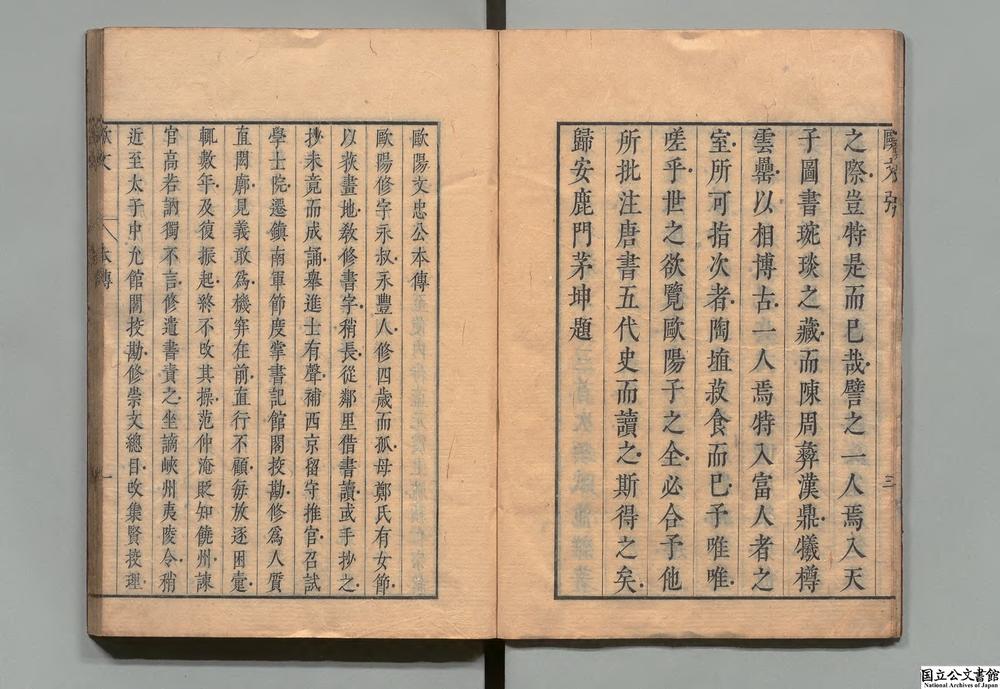 之際豈特是而已哉譬之一人焉入天
子圖書琬琰之藏而陳周彝漢鼎犧樽
雲罍以相博古一人焉特入富人者之
室所可指次者陶埴菽食而已予唯唯
嗟乎世之欲覽歐陽子之全必合予他
所批注唐書五代史而讀之斯得之矣
歸安鹿門茅坤題
三
歐陽文忠公本傳
歐陽修字永叔永豐人修四歲而孤母鄭氏有女節
以荻畫地教修書字稍長從鄰里借書讀或手抄之
抄未竟而成誦舉進士有聲補西京留守推官召試
學士院遷鎮南軍節度掌書記館閣挍勘修爲人質
直閎廓見義敢爲機穽在前直行不顧每放逐困躓
輒數年及復振起終不攺其操范仲淹貶知饒州諫
官高若訥獨不言修遺書責之坐謫峽州夷陵令稍
近至太子中允館閣挍勘修崇文總目攺集賢挍理
歐文
本傳
一
国立公文書館
National Archives of Japan